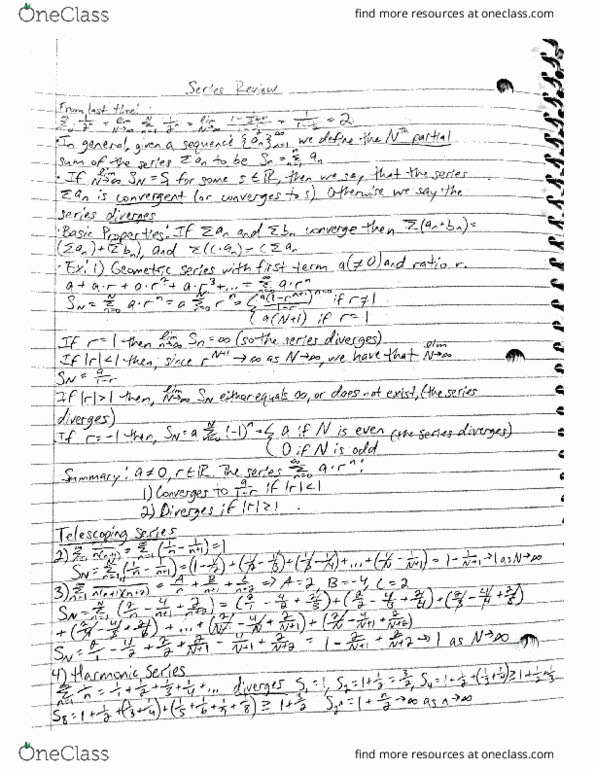 OneClass
find more resources at oneclass.com
Series Review
From last time:
∑ 1/2^n = lim N→∞ ∑ 1/2^n = lim N→∞ = 1/(1-1/2) = 2
· In general, given a sequence {a_n}_{n=1}^∞ we define the N^th partial
sum of the series ∑a_n to be S_N = ∑ a_n
· If lim N→∞ S_N = S, for some s∈ℝ, then we say that the series
∑a_n is convergent (or converges to s). Otherwise we say the
series diverges
· Basic Properties: If ∑a_n and ∑b_n converge then ∑(a_n+b_n) =
(∑a_n)+(∑b_n), and ∑(c·a_n) = c∑a_n
· Ex: 1) Geometric series with first term a(≠0) and ratio r.
a + a·r + a·r² + a·r³ + ... = ∑_{n=0}^∞ a·r^n
S_N = ∑_{n=0}^N a·r^n = a ∑_{n=0}^N r^n = { a(1-r^{N+1})/(1-r) if r≠1
{ a(N+1) if r=1
If r=1 then lim n→∞ S_n = ∞ (so the series diverges)
If |r|<1 then, since r^{N+1} → ∞ as N→∞, we have that lim N→∞
S_N = a/(1-r)
If |r|>1 then, lim N→∞ S_N either equals ∞, or does not exist, (the series
diverges)
If r=-1 then, S_N = a ∑ (-1)^n = { a if N is even (the series diverges)
{ 0 if N is odd
Summary: a≠0, r∈ℝ. The series ∑_{n=0}^∞ a·r^n:
1) Converges to a/(1-r) if |r|<1
2) Diverges if |r|≥1.
Telescoping Series
2) ∑_{n=1}^∞ 1/(n(n+1)) = ∑_{n=1}^∞ (1/n - 1/(n+1)) = 1
S_N = ∑_{n=1}^N (1/n - 1/(n+1)) = (1-1/2)+(1/2-1/3)+(1/3-1/4)+...+(1/N - 1/(N+1)) = 1 - 1/(N+1) → 1 as N→∞
3) ∑_{n=1}^∞ /(n(n+1)(n+2)) = A/n + B/(n+1) + C/(n+2) => A=2 B=-4, C=2
S_N = ∑_{n=1}^N (2/n - 4/(n+1) + 2/(n+2)) = (2/1 - 4/2 + 2/3) + (2/2 - 4/3 + 2/4) + (2/3 - 4/4 + 2/5)
+ (2/4 - 4/5 + 2/6) + ... + (2/N-1 - 4/N + 2/N+1) + (2/N - 4/N+1 + 2/N+2)
S_N = 2/1 - 4/2 + 2/2 + 2/N+1 - 4/N+1 + 2/N+2 = 1 - 2/N+1 + 2/N+2 → 1 as N→∞
4) Harmonic Series
∑_{n=1}^∞ 1/n = 1/1 + 1/2 + 1/3 + 1/4 + ... diverges S_1 = 1, S_2 = 1+1/2 = 3/2, S_4 = 1+1/2+(1/3+1/4) ≥ 1+1/2+1/2
S_8 = 1+1/2+(1/3+1/4)+(1/5+1/6+1/7+1/8) ≥ 1+3/2 S_{2^n} = 1+n/2 → ∞ as n→∞
OneClass
find more resources at oneclass.com